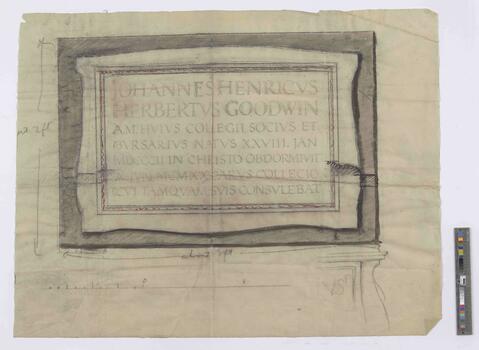 JOHANNES HENRICVS
HERBERTVS GOODWIN
A.M. HVIVS COLLEGII SOCIVS ET
BVRSARIVS NATVS XXVIII JAN
IN CHRISTO OBDORMIVIT
CARVS COLLEGIO
CVI TAMQVAM SVIS CONSVLEBAT
about 3ft